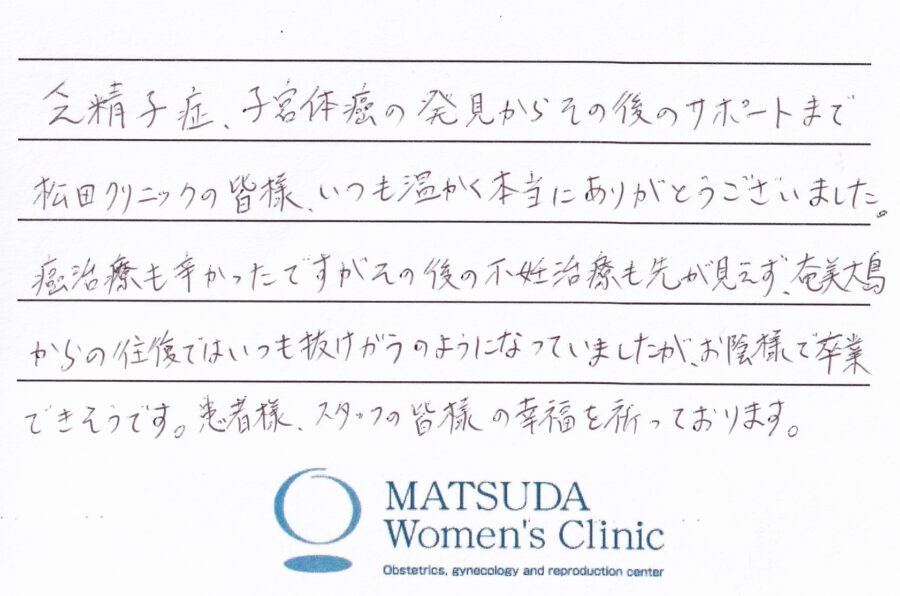 乏精子症、子宮体癌の発見からその後のサポートまで
松田クリニックの皆様、いつも温かく本当にありがとうございました。
癌治療も辛かったですがその後の不妊治療も先が見えず、奄美大島
からの往復ではいつも抜けがらのようになっていましたが、お陰様で卒業
できそうです。患者様、スタッフの皆様の幸福を祈っております。
MATSUDA
Women's Clinic
Obstetrics, gynecology and reproduction center